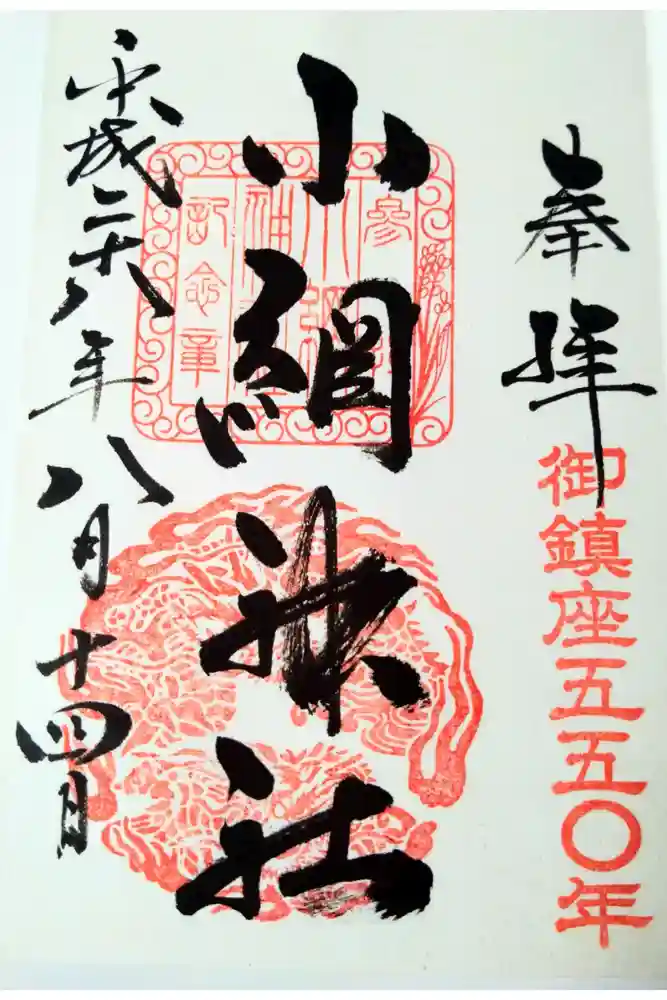 奉拝
御鎮座五五〇年
小網神社
参拝
小網神社
記念章
平成二十八年八月十四日